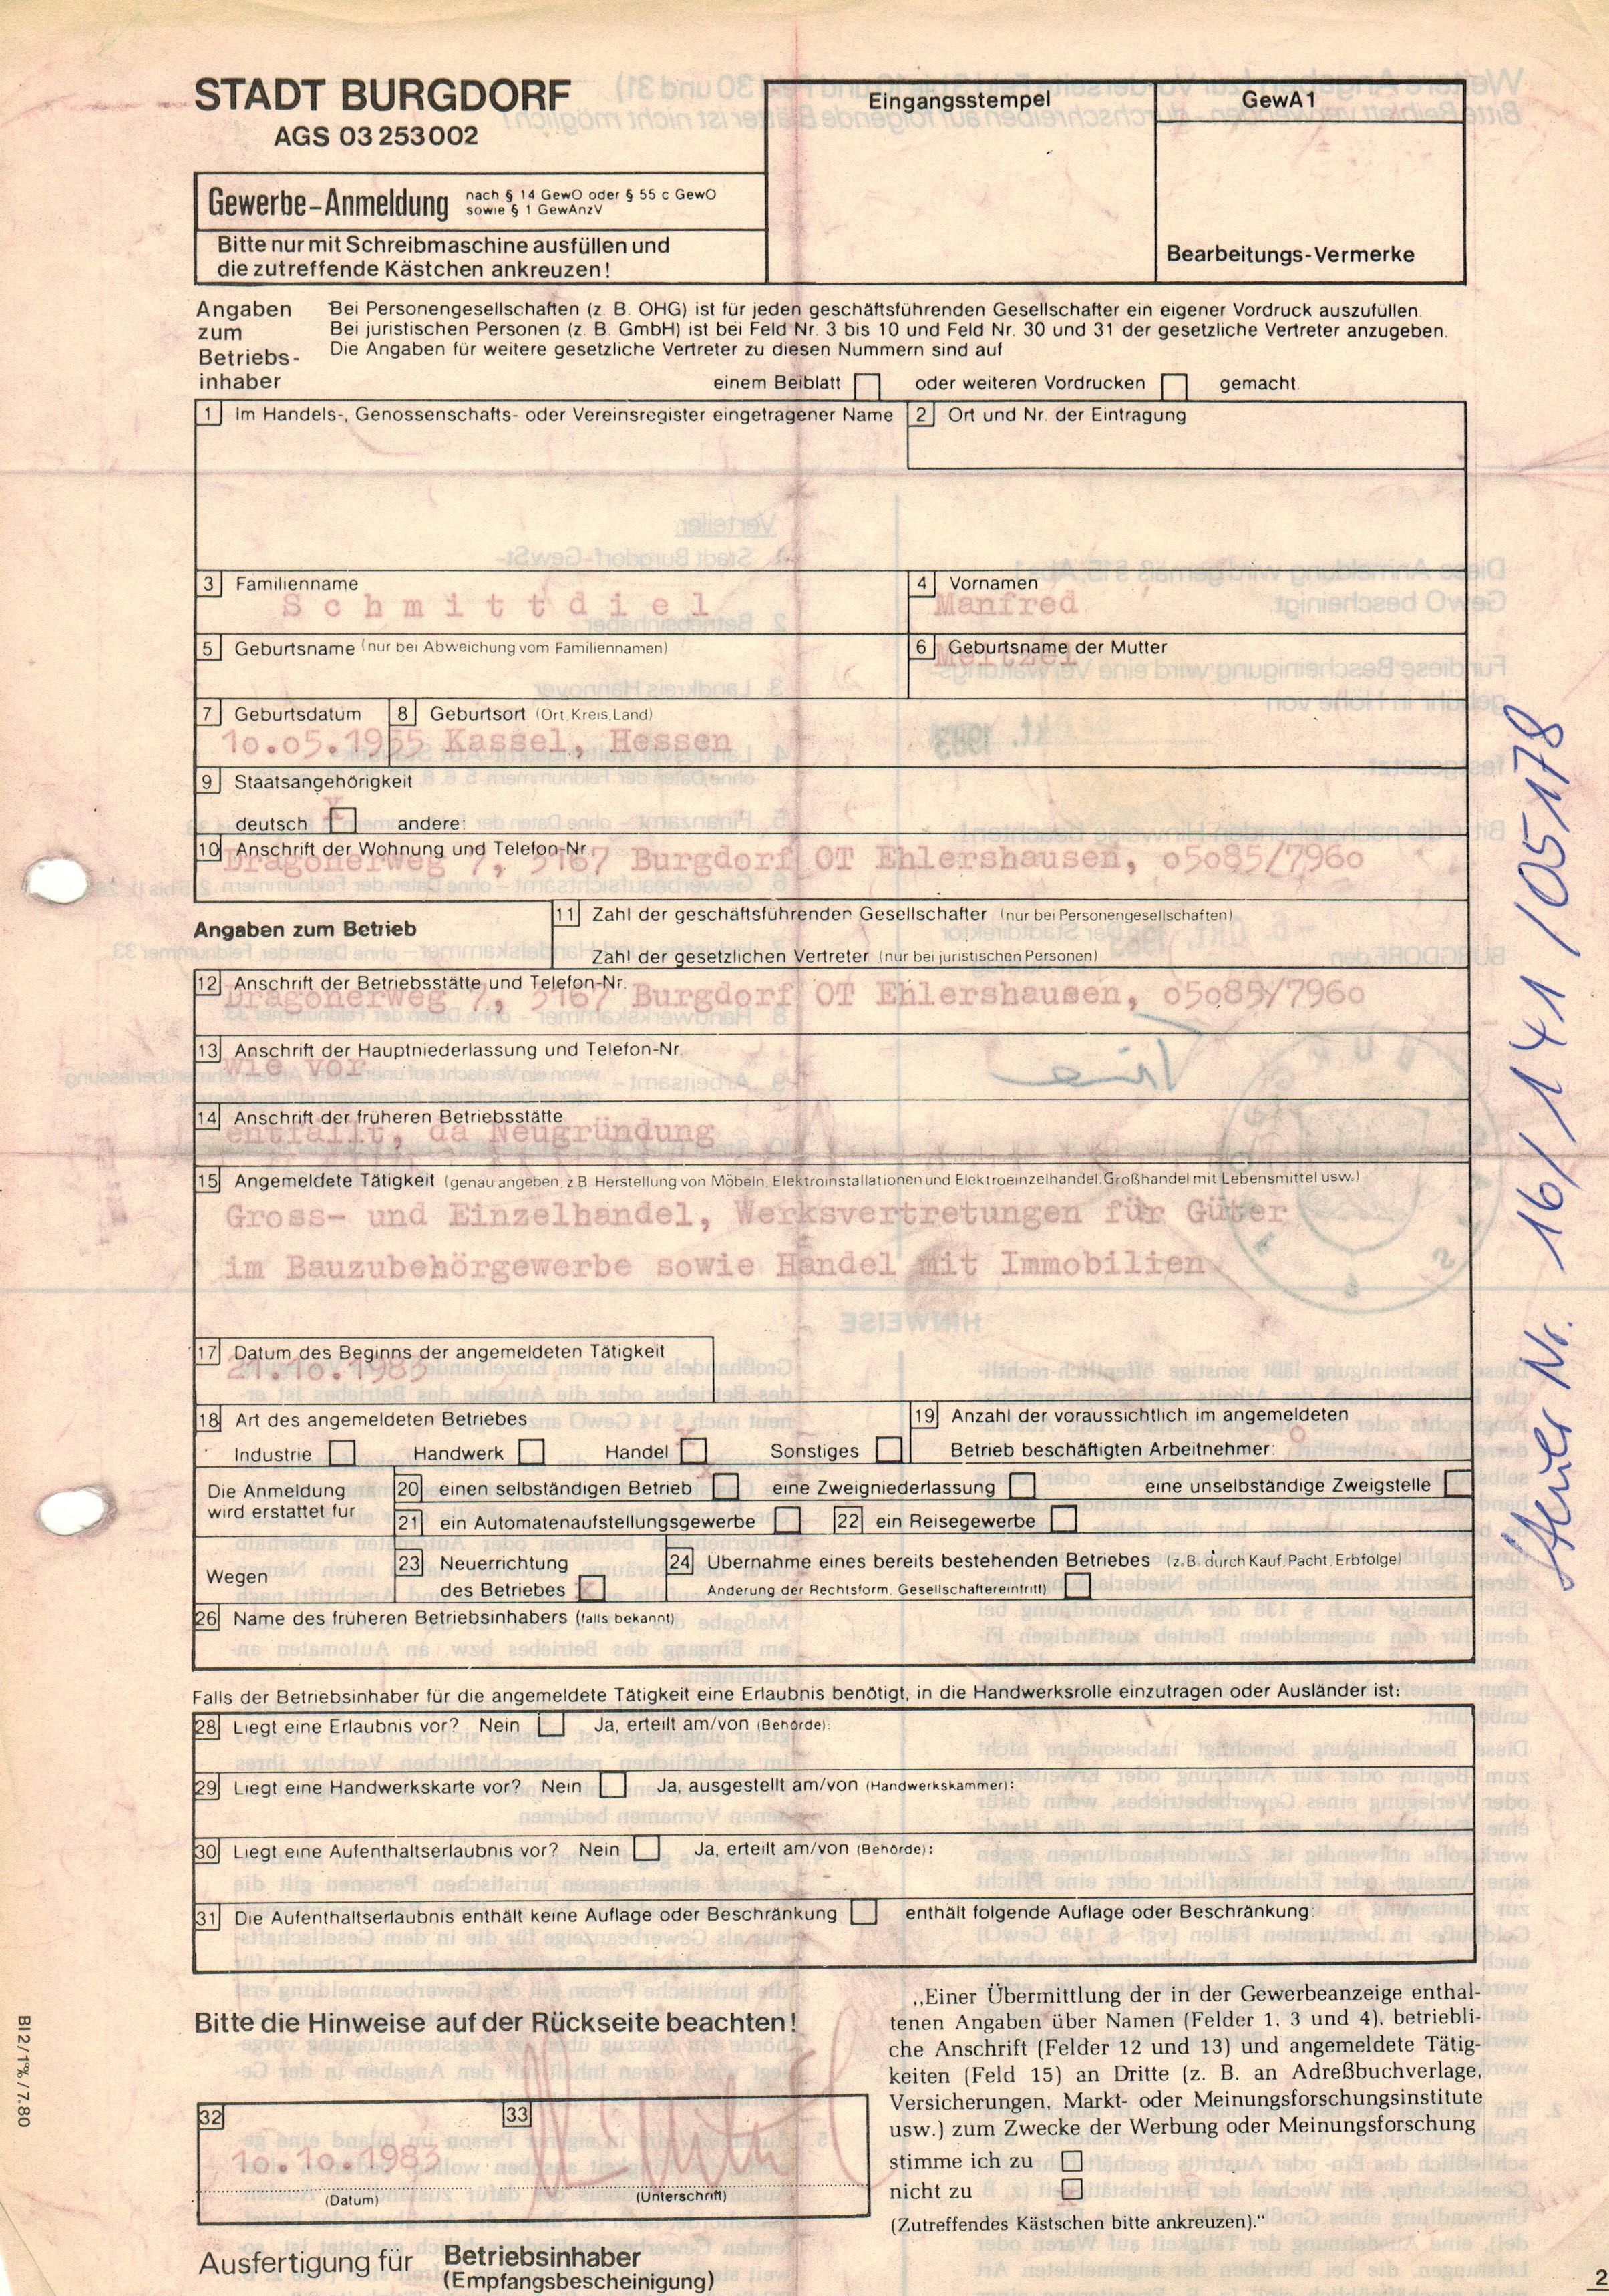 STADT BURGDORF
AGS 03 253 002
Eingangsstempel
GewA 1
Gewerbe-Anmeldung nach § 14 GewO oder § 55 c GewO
sowie § 1 GewAnzV
Bitte nur mit Schreibmaschine ausfüllen und
die zutreffende Kästchen ankreuzen!
Bearbeitungs-Vermerke
Angaben zum Betriebs-inhaber
Bei Personengesellschaften (z. B. OHG) ist für jeden geschäftsführenden Gesellschafter ein eigener Vordruck auszufüllen.
Bei juristischen Personen (z. B. GmbH) ist bei Feld Nr. 3 bis 10 und Feld Nr. 30 und 31 der gesetzliche Vertreter anzugeben.
Die Angaben für weitere gesetzliche Vertreter zu diesen Nummern sind auf
einem Beiblatt oder weiteren Vordrucken gemacht.
1 Im Handels-, Genossenschafts- oder Vereinsregister eingetragener Name
2 Ort und Nr. der Eintragung
3 Familienname
Schmittdiel
4 Vornamen
Manfred
5 Geburtsname (nur bei Abweichung vom Familiennamen)
6 Geburtsname der Mutter
Meltzel
7 Geburtsdatum
10.05.1955
8 Geburtsort (Ort, Kreis, Land)
Kassel, Hessen
9 Staatsangehörigkeit
deutsch andere:
10 Anschrift der Wohnung und Telefon-Nr.
Dragonerweg 7, 3167 Burgdorf OT Ehlershausen, o5o85/796o
Angaben zum Betrieb
11 Zahl der geschäftsführenden Gesellschafter (nur bei Personengesellschaften)
Zahl der gesetzlichen Vertreter (nur bei juristischen Personen)
12 Anschrift der Betriebsstätte und Telefon-Nr.
Dragonerweg 7, 3167 Burgdorf OT Ehlershausen, o5o85/796o
13 Anschrift der Hauptniederlassung und Telefon-Nr.
wie vor
14 Anschrift der früheren Betriebsstätte
entfällt, da Neugründung
15 Angemeldete Tätigkeit (genau angeben, z. B. Herstellung von Möbeln, Elektroinstallationen und Elektroeinzelhandel, Großhandel mit Lebensmittel usw.)
Gross- und Einzelhandel, Werksvertretungen für Güter
im Bauzubehörgewerbe sowie Handel mit Immobilien
17 Datum des Beginns der angemeldeten Tätigkeit
21.10.1983
18 Art des angemeldeten Betriebes
Industrie Handwerk Handel Sonstiges
19 Anzahl der voraussichtlich im angemeldeten
Betrieb beschäftigten Arbeitnehmer: o
Die Anmeldung
wird erstattet für
20 einen selbständigen Betrieb eine Zweigniederlassung eine unselbständige Zweigstelle
21 ein Automatenaufstellungsgewerbe 22 ein Reisegewerbe
Wegen
23 Neuerrichtung
des Betriebes
24 Übernahme eines bereits bestehenden Betriebes (z. B. durch Kauf, Pacht, Erbfolge)
Änderung der Rechtsform, Gesellschaftereintritt)
26 Name des früheren Betriebsinhabers (falls bekannt)
Falls der Betriebsinhaber für die angemeldete Tätigkeit eine Erlaubnis benötigt, in die Handwerksrolle einzutragen oder Ausländer ist:
28 Liegt eine Erlaubnis vor? Nein Ja, erteilt am/von (Behörde):
29 Liegt eine Handwerkskarte vor? Nein Ja, ausgestellt am/von (Handwerkskammer):
30 Liegt eine Aufenthaltserlaubnis vor? Nein Ja, erteilt am/von (Behörde):
31 Die Aufenthaltserlaubnis enthält keine Auflage oder Beschränkung enthält folgende Auflage oder Beschränkung:
Bitte die Hinweise auf der Rückseite beachten!
32
10.10.1983
(Datum)
33
(Unterschrift)
„Einer Übermittlung der in der Gewerbeanzeige enthal-
tenen Angaben über Namen (Felder 1, 3 und 4), betriebli-
che Anschrift (Felder 12 und 13) und angemeldete Tätig-
keiten (Feld 15) an Dritte (z. B. an Adreßbuchverlage,
Versicherungen, Markt- oder Meinungsforschungsinstitute
usw.) zum Zwecke der Werbung oder Meinungsforschung
stimme ich zu
nicht zu
(Zutreffendes Kästschen bitte ankreuzen)."
Ausfertigung für Betriebsinhaber
(Empfangsbescheinigung)
2
Steuer Nr. 16/141/05178